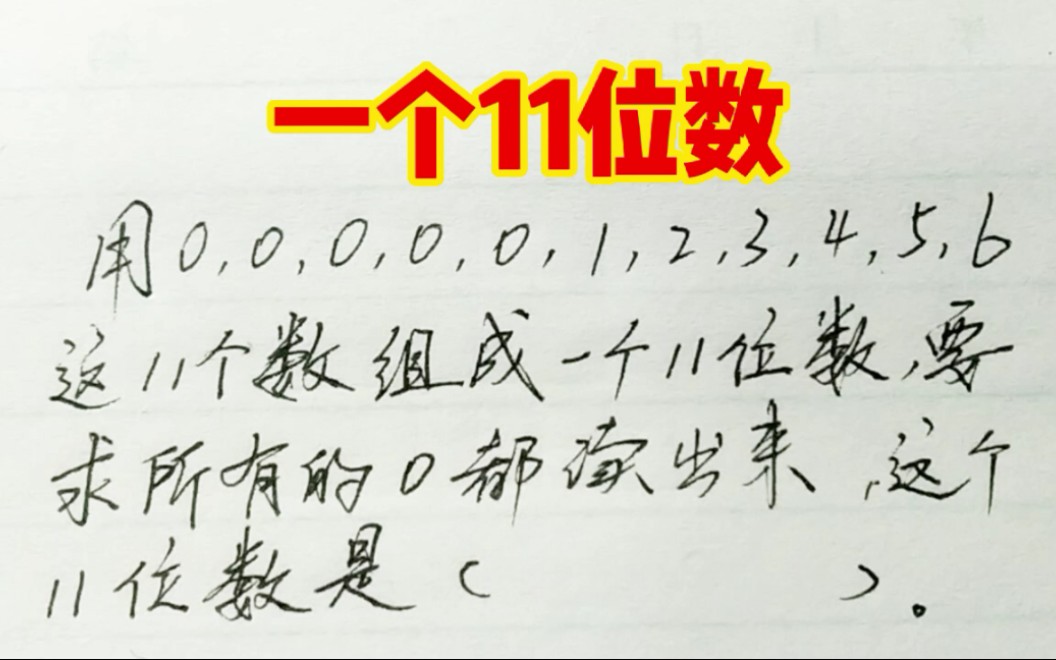 一个11位数
用0,0,0,0,0,1,2,3,4,5,6
这11个数组成一个11位数,要
求所有的0都读出来,这个
11位数是( )。